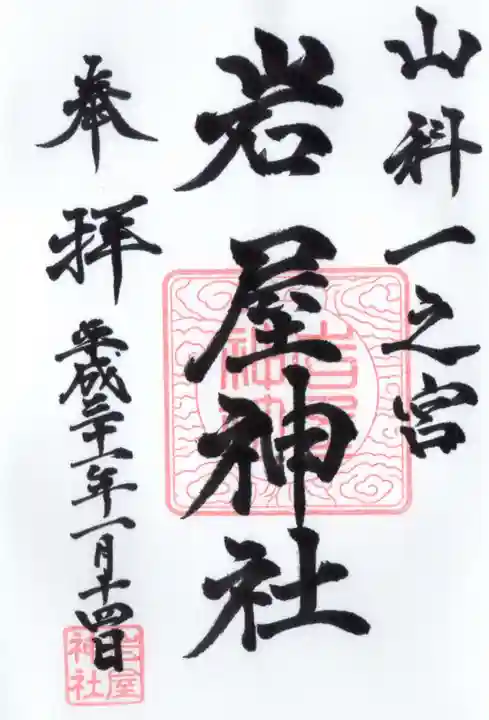 山科一之宮
岩屋神社
奉拝
平成三十一年一月十四日
岩屋
神社
岩屋
神社